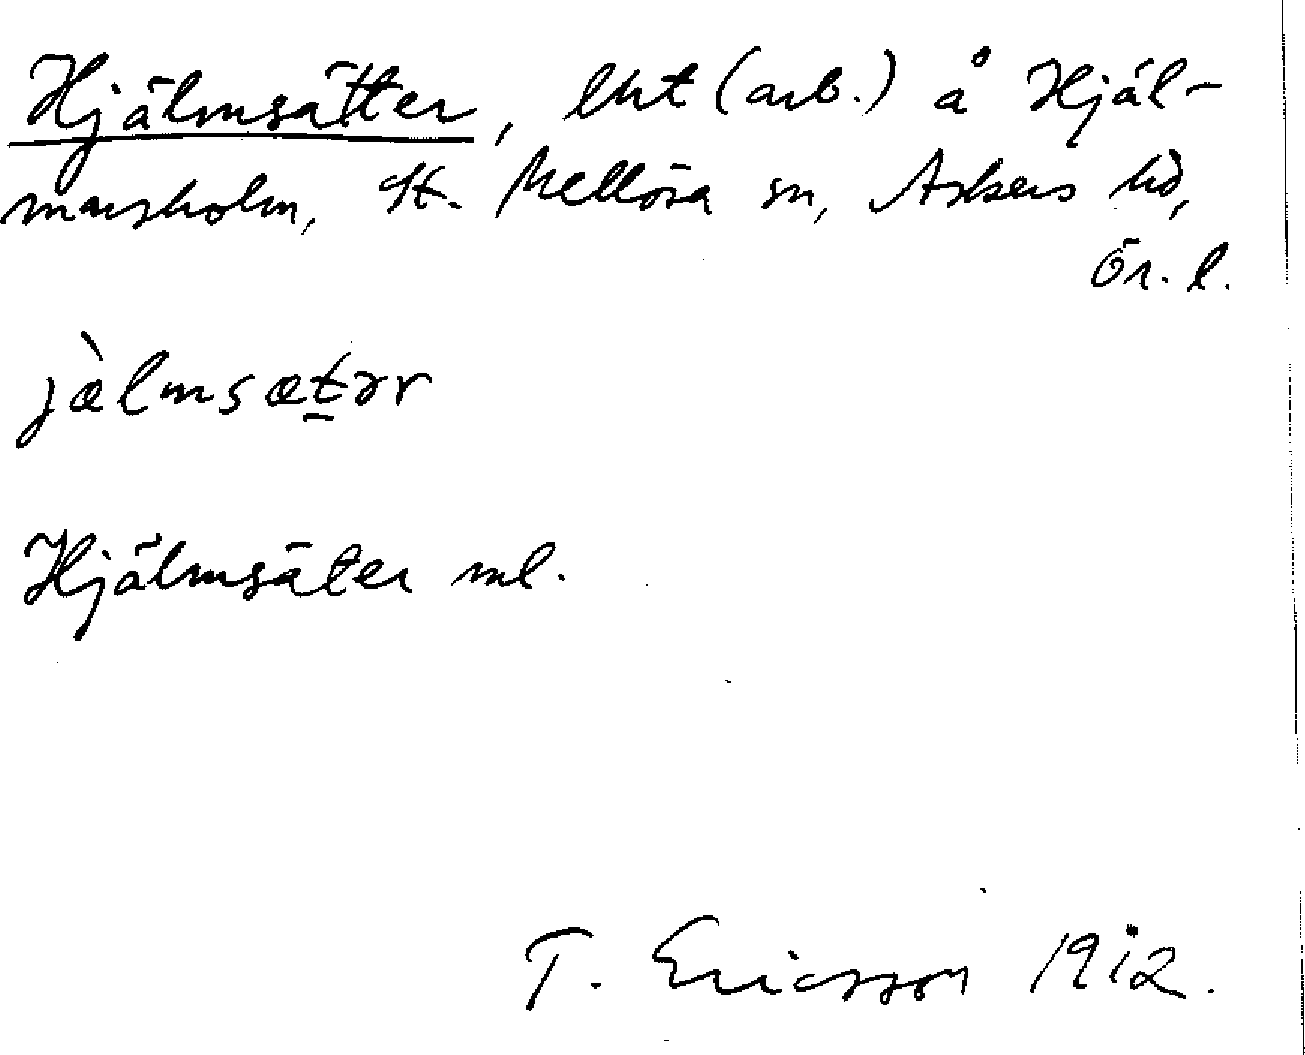 Hjälmsätter, lht (arb.) å Hjäl-
marsholm, St. Mellösa sn, Askers hd,
Ör. l.
jàlmsætər
Hjälmsäter ml.
T. Ericsson 1912.